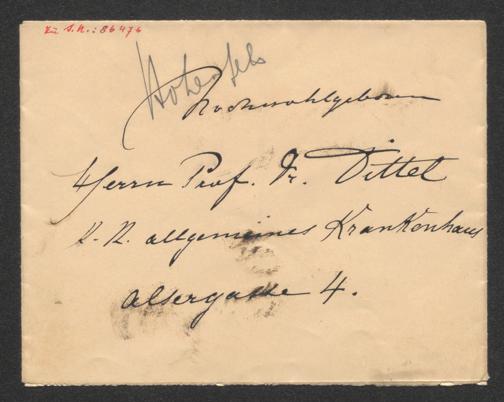 Zu S.N.: 86476
Hohenfels
Hochwohlgeboren
Herrn Prof. Dr. Dittel
K. K. allgemeines Krankenhaus
Alsergasse 4.